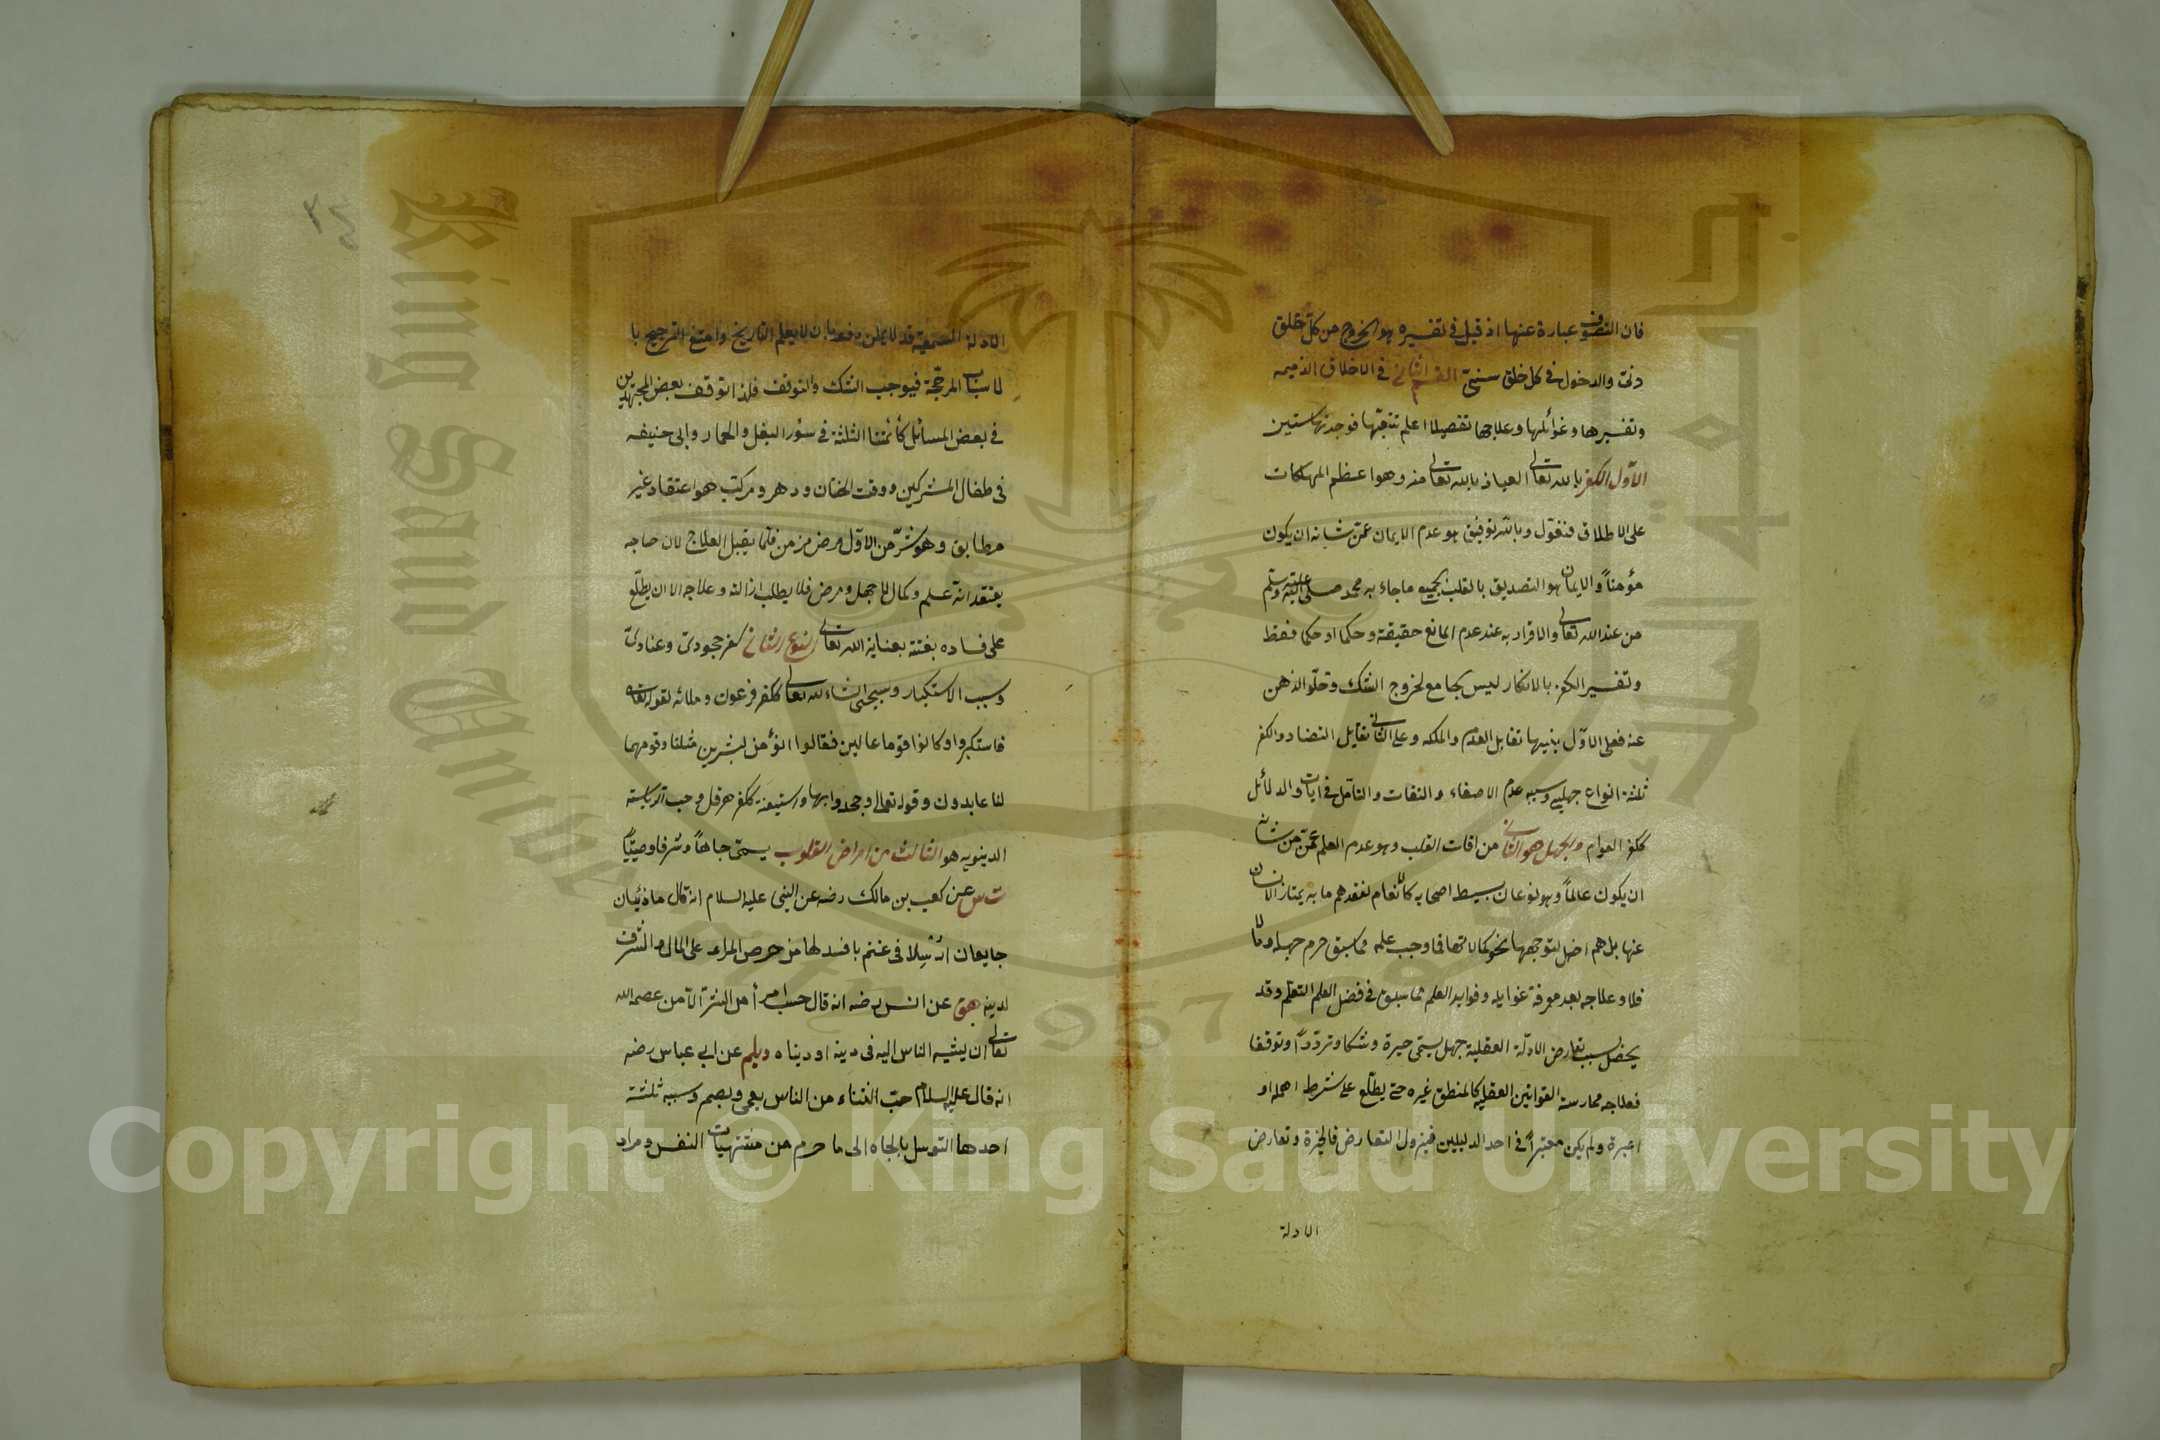 فان التصوف عبارة عنها اذ قيل فى تفسيره هو الخروج من كل خلق
دنى والدخول فى كل خلق سنى القسم الثانى فى الاخلاق الذميمه
وتفسيرها وغوائلها وعلاجها تفصيلا اعلم تتبعتها فوجدتها ستين
الاول الكفر بالله تعالى العياذ بالله تعالى منه وهو اعظم المهلكات
على الاطلاق فنقول وبالله توفيق هو عدم الايمان عمن شانه ان يكون
مؤمنا والايمان هو التصديق بالقلب بجميع ما جاء به محمد صلى الله عليه وسلم
من عند الله تعالى والاقرار به عند عدم المانع حقيقة وحكما او حكما فقط
وتفسير الكفر بالانكار ليس بجامع لخروج الشك وخلو الذهن
عنه فعلى الاول بينهما تقابل العدم والملكه وعلى الثانى تقابل التضاد والكفر
ثلثة انواع جهلى وسببه عدم الاصغاء والتفات والتأمل فى ايات والدلائل
ككفر العوام والجهل هو الثانى من افات القلب وهو عدم العلم عمن من شانه
ان يكون عالما وهو نوعان بسيط اصحابه كالانعام لفقدهم ما به يمتاز الانسان
عنها بل هم اضل لتوجهها نحو كمالاتها فما وجب علمه مما سبق حرم جهله ومالا
فلا وعلاجه بعد معرفة غوايله وفوايد العلم مما سبق فى فضل العلم التعلم وقد
يحصل بسبب تعارض الادلة العقلية جهل يسمى حيرة وشكا وترددا وتوقفا
فعلاجه ممارسة القوانين العقليه كالمنطق غيره حتى يطلع على شرط اهمله او
اعبره ولم يكن معتبرا فى احد الدليلين فيزول التعارض فالحيرة وتعارض
الادلة
الادلة السمعية قد لا يمكن دفعه بان لا يعلم التاريخ وامتنع الترجيح با
لاسباب المرجحة فيوجب الشك والتوقف فلذا توقف بعض المجتهدين
فى بعض المسائل كأئمتنا الثلثة فى سؤر البغل والحمار وابى حنيفه
فى طفال المشركين ووقت الختان ودهر ومركب هو اعتقاد غير
مطابق وهو شر من الاول مرض مزمن قلما يقبل العلاج لان صاحبه
يعتقد انه علم وكمال لا جهل ومرض فلا يطلب ازالته وعلاجه الا ان يطلع
على فساده بغتة بعناية الله تعالى النوع الثانى كفر جحودى وعنادى
وسببه الاستكبار وسيجئ انشاء الله تعالى ككفر فرعون وملائه لقوله تعالى
فاستكبروا وكانوا قوما عالين فقالوا انؤمن لبشرين مثلنا وقومهما
لنا عابدون وقوله تعالى وجحدوا بها واستيقنته ككفر هرقل وحب الرياسة
الدينويه هو الثالث من امراض القلوب يسمى جاها وشرفا وصيتا
ت س عن كعب بن مالك رضه عن النبى عليه السلام انه قال ما ذئبان
جايعان ارسلا فى غنم بافسد لها من حرص المراء على المال والشرف
لدينه هق عن انس رضه انه قال حسب امرأ من الشر الا من عصمه الله
تعالى ان يشيه الناس اليه فى دينه او ديناه ديلم عن ابى عباس رضه
انه قال عليه السلام حب الثناء من الناس يعمى ويصم وسببه ثلثة
احدها التوسل بالجاه الى ما حرم من مشتهيات النفس ومراد
Copyright © King Saud University
King Saud University
1957